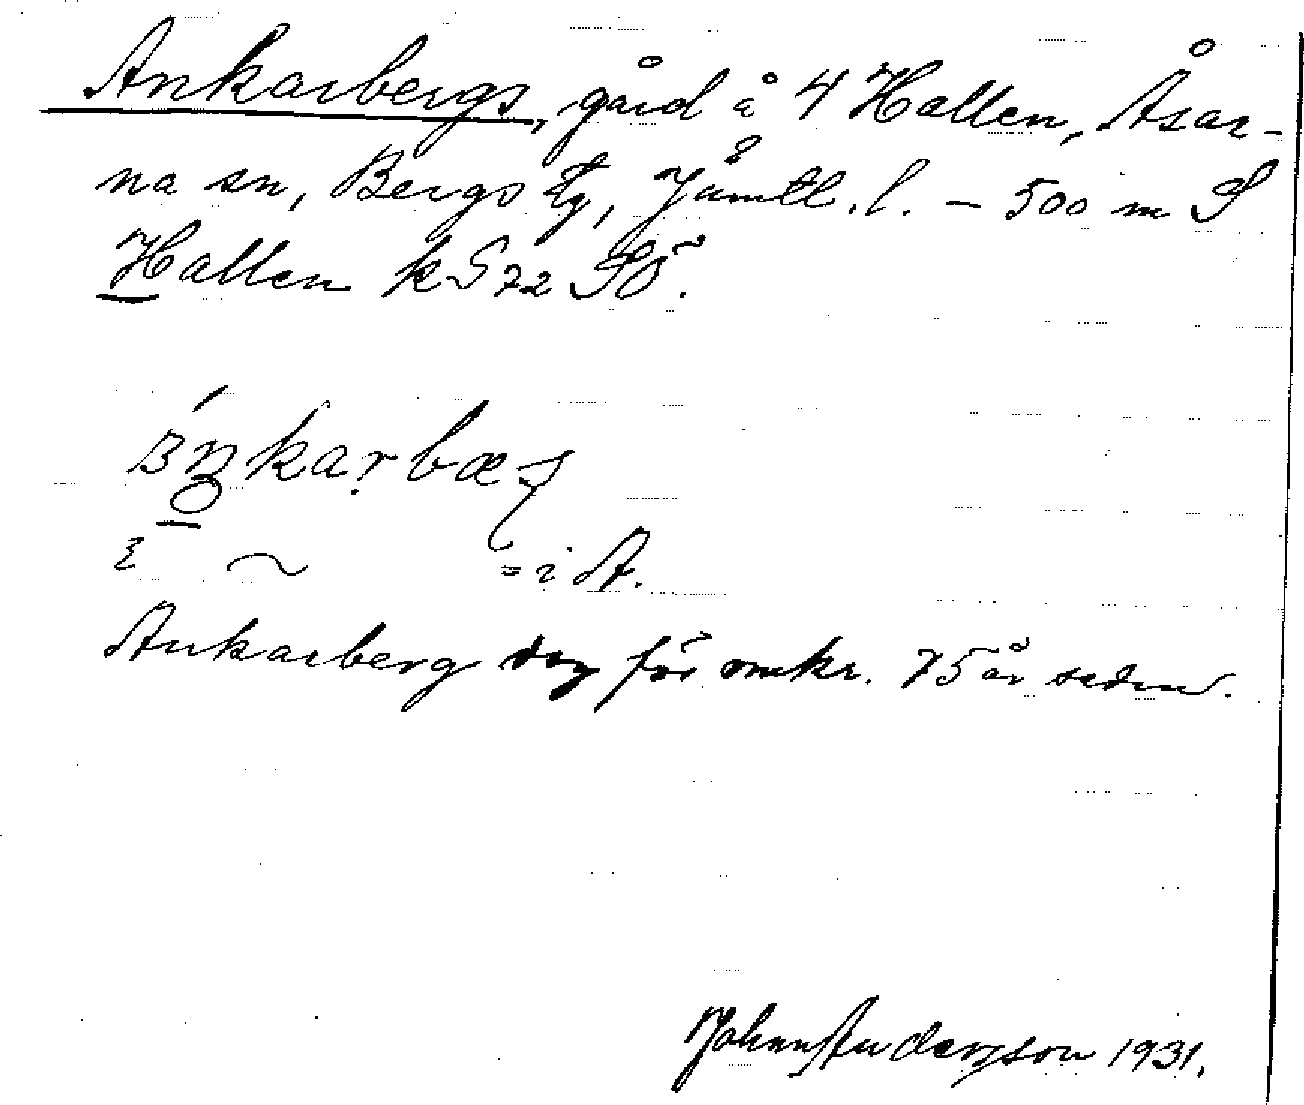 Ankarbergs, gård å 4 Hallen, Åsar-
na sn, Bergs tg, Jämtl. l. – 500 m S
Hallen k S 72 SÖ.
= i A.
Ankarberg dog för omkr. 75 år sedan.
Johan Andersson 1931.